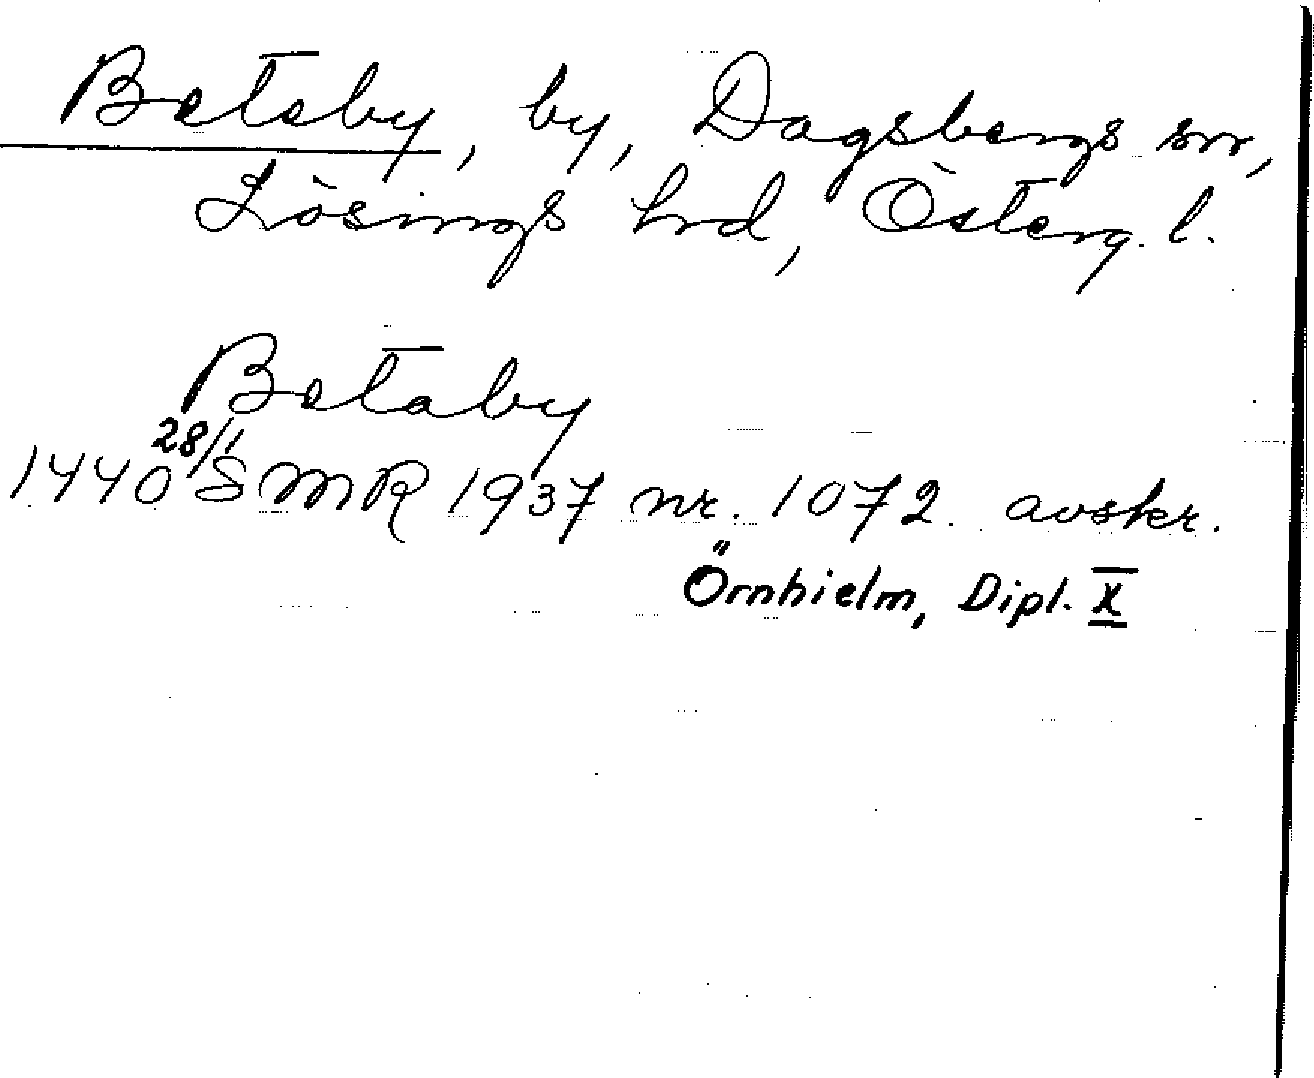 Beteby, by, Dagsbergs sn,
Lösings hrd, Österg. l.
Betaby
28/1
1440 SMR 1937 nr. 1072. avskr.
Örnhielm, Dipl. X